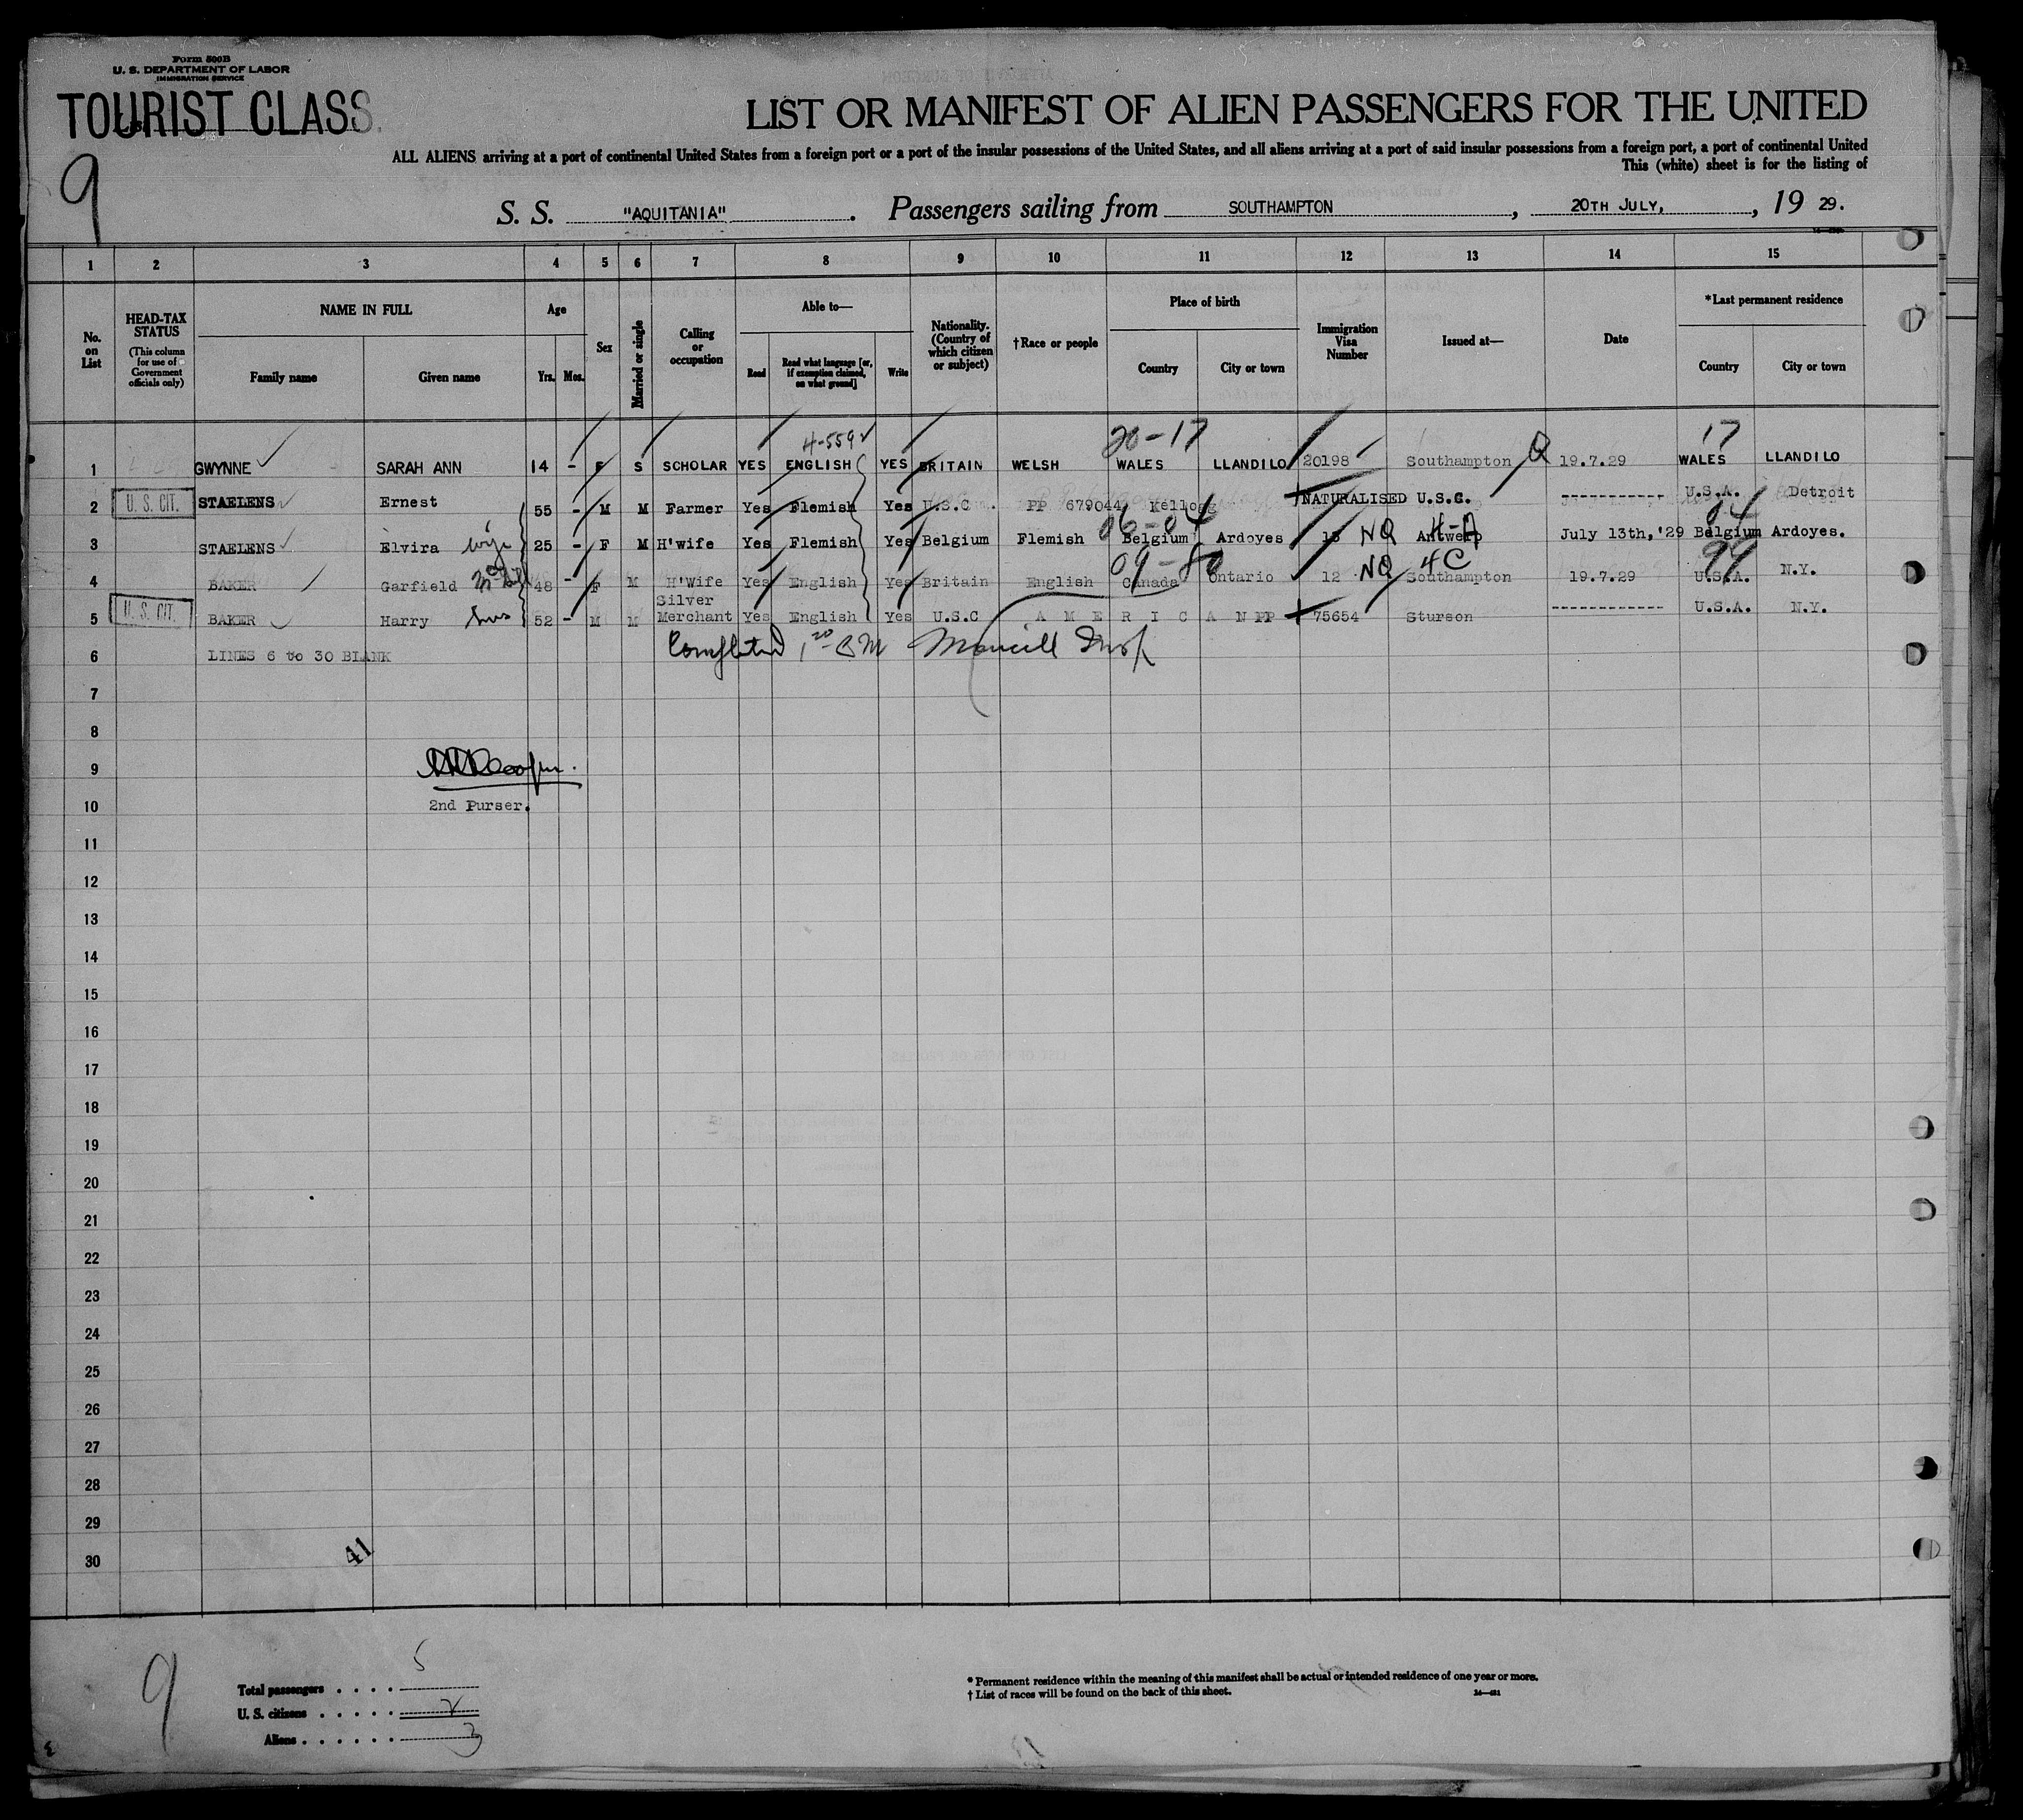 Form 500B
U. S. DEPARTMENT OF LABOR
IMMIGRATION SERVICE
TOURIST CLASS.
9
LIST OR MANIFEST OF ALIEN PASSENGERS FOR THE UNITED
ALL ALIENS arriving at a port of continental United States from a foreign port or a port of the insular possessions of the United States, and all aliens arriving at a port of said insular possessions from a foreign port, a port of continental United
This (white) sheet is for the listing of
S. S. "AQUITANIA". Passengers sailing from SOUTHAMPTON, 20TH JULY, , 19 29.
1 2 3 4 5 6 7 8 9 10 11 12 13 14 15
No. on List
HEAD-TAX STATUS (This column for use of Government officials only)
NAME IN FULL
Family name Given name
Age
Yrs. Mos.
Sex
Married or single
Calling or occupation
Able to—
Read Read what language [or, if exemption claimed, on what ground] Write
Nationality. (Country of which citizen or subject)
†Race or people
Place of birth
Country City or town
Immigration Visa Number
Issued at—
Date
*Last permanent residence
Country City or town
4-559 20-17 17
1 GWYNNE SARAH ANN 14 - F S SCHOLAR YES ENGLISH YES BRITAIN WELSH WALES LLANDILO 20198 Southampton Q 19.7.29 WALES LLANDILO
2 U. S. CIT. STAELENS Ernest 55 - M M Farmer Yes Flemish Yes U.S.C PP 679044 Kellogg NATURALISED U.S.C. ----------- U.S.A. Detroit
06-04 04
3 STAELENS Elvira wife 25 - F M H'wife Yes Flemish Yes Belgium Flemish Belgium Ardoyes 13 NQ 4-A Antwerp July 13th, '29 Belgium Ardoyes.
09-80 99
4 BAKER Garfield 48 - F M H'Wife Yes English Yes Britain English Canada Ontario 12 NQ 4C Southampton 19.7.29 U.S.A. N.Y.
5 U. S. CIT. BAKER Harry hus 52 - M M Silver Merchant Yes English Yes U.S.C AMERICAN PP 75654 Sturson ------------ U.S.A. N.Y.
6 LINES 6 to 30 BLANK Completed
7
8
9
10 2nd Purser.
11
12
13
14
15
16
17
18
19
20
21
22
23
24
25
26
27
28
29
30
41
9
Total passengers . . . . 5
U. S. citizens . . . . . 2
Aliens . . . . . . 3
* Permanent residence within the meaning of this manifest shall be actual or intended residence of one year or more.
† List of races will be found on the back of this sheet.